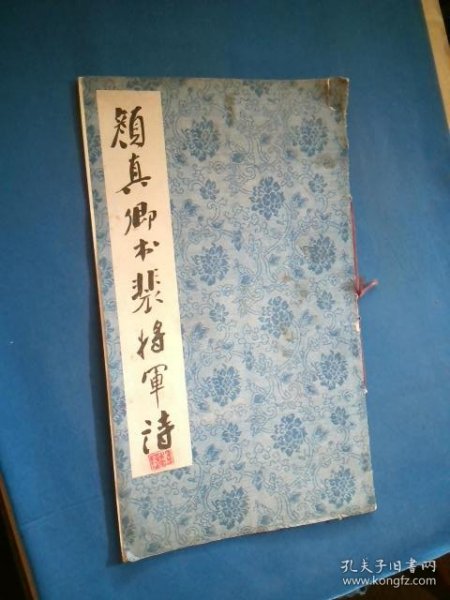 顔真卿书裴将軍詩
孔夫子旧书网
www.kongfz.com